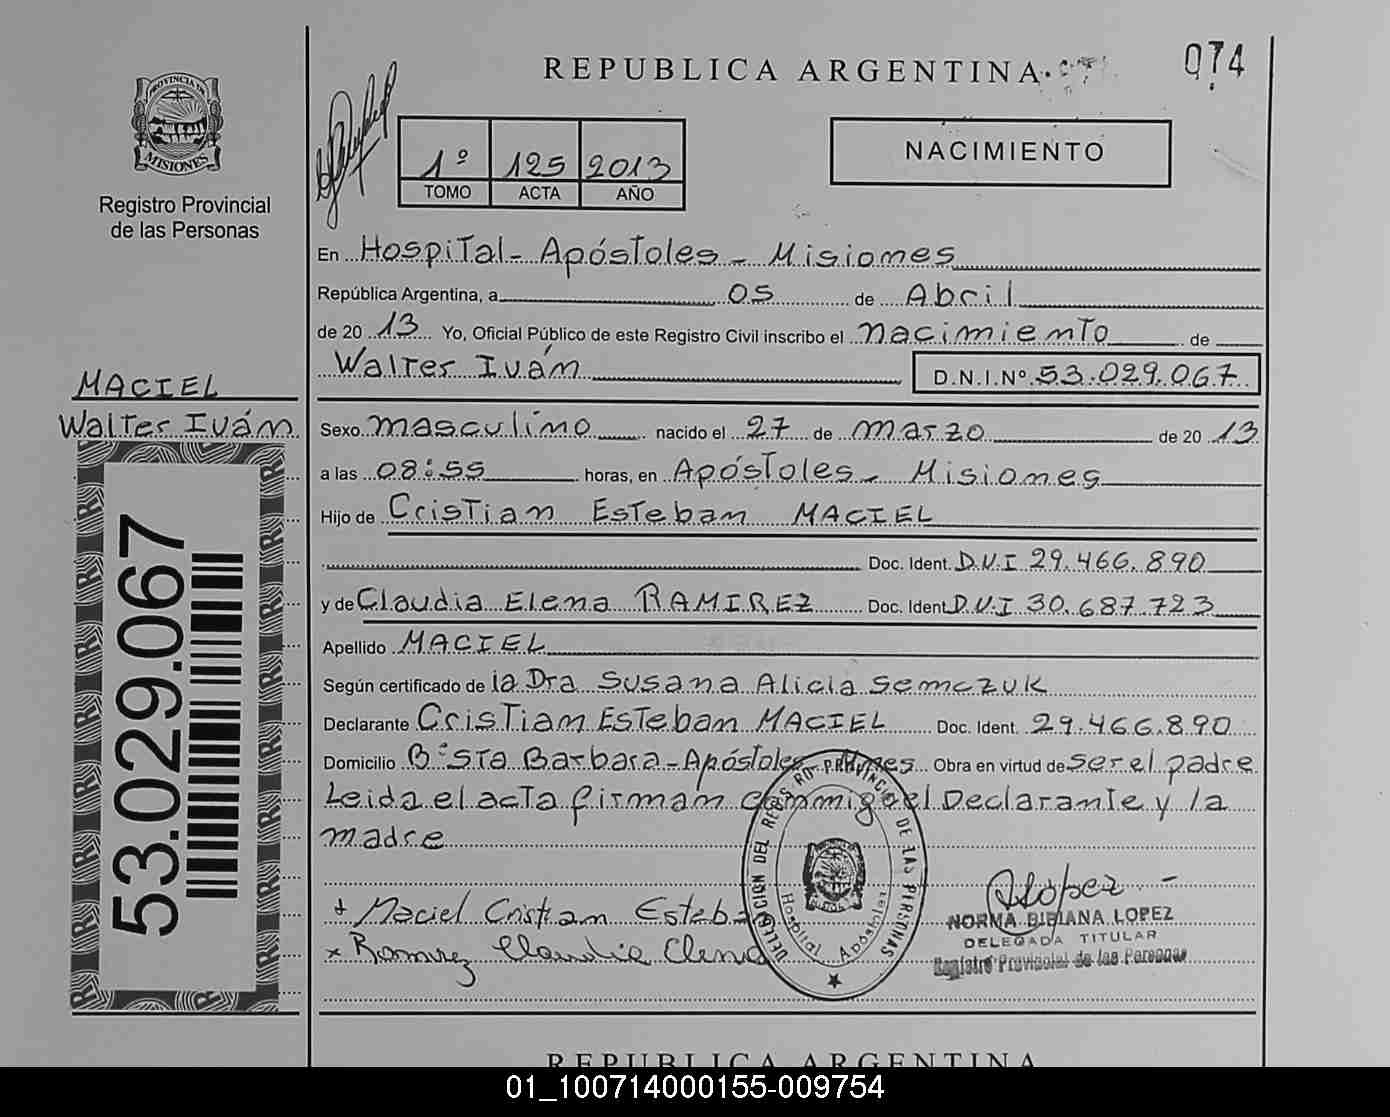 REPUBLICA ARGENTINA
074
PROVINCIA DE
MISIONES
Registro Provincial
de las Personas
1º 125 2013
TOMO ACTA AÑO
NACIMIENTO
En Hospital - Apóstoles - Misiones
República Argentina, a 05 de Abril
de 2013 Yo, Oficial Público de este Registro Civil inscribo el nacimiento de
Walter Iván D.N.I.Nº 53.029.067
MACIEL
Walter Iván
53.029.067
Sexo masculino nacido el 27 de marzo de 2013
a las 08:55 horas, en Apóstoles - Misiones
Hijo de Cristian Esteban MACIEL
Doc. Ident. D.N.I 29.466.890
y de Claudia Elena RAMIREZ Doc. Ident. D.N.I 30.687.723
Apellido MACIEL
Según certificado de la Dra Susana Alicia Semczuk
Declarante Cristian Esteban MACIEL Doc. Ident. 29.466.890
Domicilio Bº Sta Barbara - Apóstoles - Mnes Obra en virtud de ser el padre
Leida el acta firman conmigo el Declarante y la
madre
+ Maciel Cristian Esteban
x Ramirez Claudia Elena
DELEGACION DEL REGISTRO PROVINCIAL DE LAS PERSONAS
Hospital Apóstoles
NLópez
NORMA BIBIANA LOPEZ
DELEGADA TITULAR
Registro Provincial de las Personas
REPUBLICA ARGENTINA
01_100714000155-009754